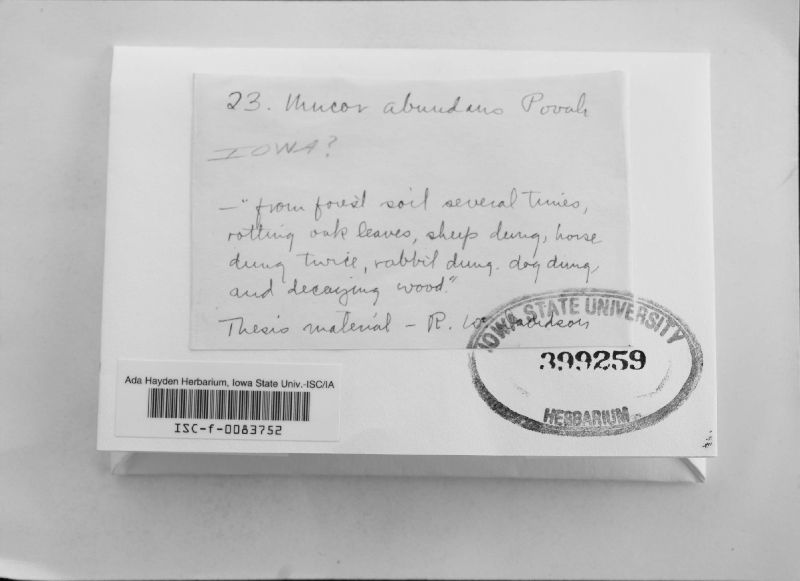 23. Mucor abundans Povah
IOWA?
—"from forest soil several times,
rotting oak leaves, sheep dung, horse
dung twice, rabbit dung. dog dung,
and decaying wood."
Thesis material – R. W. Davidson
IOWA STATE UNIVERSITY
399259
HERBARIUM
Ada Hayden Herbarium, Iowa State Univ.-ISC/IA
ISC-f-0083752